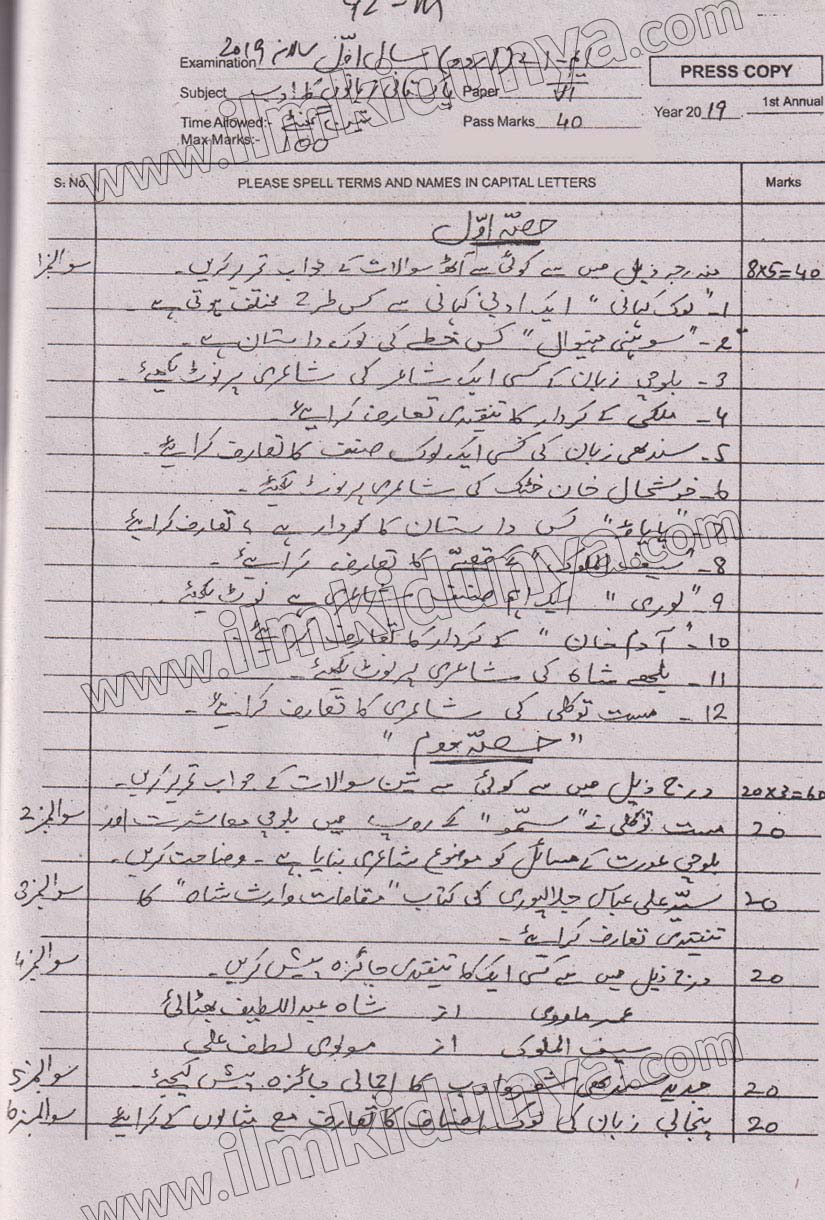 42-M
Examination ایم-اے (اردو) سال اوّل سالانہ 2019
PRESS COPY
Subject پاکستانی زبانوں کا ادب Paper VI
Year 2019 1st Annual
Time Allowed:- تین گھنٹے Pass Marks 40
Max Marks:- 100
S. No. PLEASE SPELL TERMS AND NAMES IN CAPITAL LETTERS Marks
حصہ اوّل
سوال نمبر 1 مندرجہ ذیل میں سے کوئی سے آٹھ سوالات کے جواب تحریر کریں۔ 8x5=40
1- "لوک کہانی" ایک ادبی کہانی سے کس طرح مختلف ہوتی ہے۔
2- "سوہنی مہیوال" کس خطے کی لوک داستان ہے۔
3- بلوچی زبان کے کسی ایک شاعر کی شاعری پر نوٹ لکھیے۔
4- ملکی کے کردار کا تنقیدی تعارف کرایئے۔
5- سندھی زبان کی کسی ایک لوک صنف کا تعارف کرایئے۔
6- خوشحال خان خٹک کی شاعری پر نوٹ لکھیئے۔
7- کس داستان کا کردار ہے، تعارف کرایئے
8- "سیف الملوک" کے قصے کا تعارف کرایئے۔
9- "لوری" ایک اہم صنف شاعری ہے نوٹ لکھیئے۔
10- "آدم خان" کے کردار کا تعارف کرایئے۔
11- بلھے شاہ کی شاعری پر نوٹ لکھیئے۔
12- مست توکلی کی شاعری کا تعارف کرایئے۔
"حصہ دوم"
درج ذیل میں سے کوئی سے تین سوالات کے جواب تحریر کریں۔ 20x3=60
سوال نمبر 2 مست توکلی نے "سمّو" کے روپ میں بلوچی معاشرت اور 20
بلوچی عورت کے مسائل کو موضوع شاعری بنایا ہے۔ وضاحت کریں۔
سوال نمبر 3 سید علی عباس جلالپوری کی کتاب "مقامات وارث شاہ" کا 20
تنقیدی تعارف کرایئے۔
سوال نمبر 4 درج ذیل میں سے کسی ایک کا تنقیدی جائزہ پیش کریں۔ 20
عمر ماروی از شاہ عبداللطیف بھٹائی
سیف الملوک از مولوی لطف علی
سوال نمبر 5 جدید سندھی شعر و ادب کا اجمالی جائزہ پیش کیجیے۔ 20
سوال نمبر 6 پنجابی زبان کی لوک اصناف کا تعارف مع مثالوں کے کرایئے 20
www.ilmkidunya.com
www.ilmkidunya.com
www.ilmkidunya.com